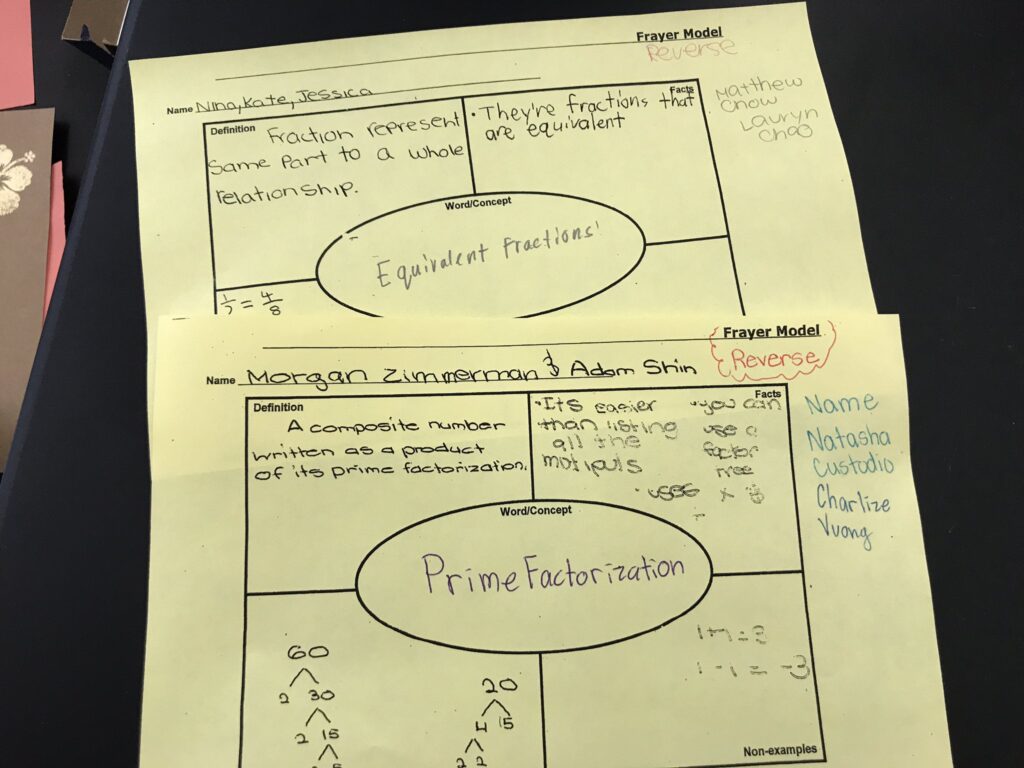 Frayer Model
Reverse
Name Nina, Kate, Jessica
Matthew
Chow
Lauryn
Chao
Definition
Fraction represent
same part to a whole
relationship.
Facts
• They're fractions that
are equivalent
Word/Concept
Equivalent Fractions
1/2 = 4/8
Frayer Model
Reverse
Name Morgan Zimmerman & Adam Shin
Name
Natasha
Custodio
Charlize
Vuong
Definition
A composite number
written as a product
of its prime factorization.
Facts
• Its easier
than listing
all the
• you can
use a
factor
tree
• uses ×
Word/Concept
Prime Factorization
60
2 30
2 15
20
4 15
2 2
Non-examples